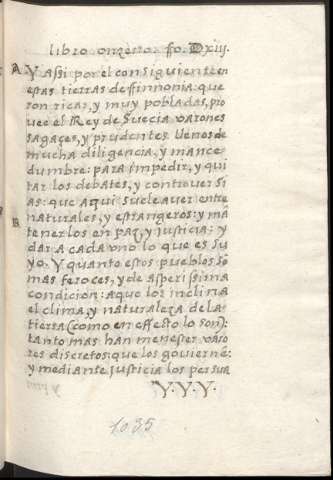 libro onzeno. fo. Dxiij.
A. Y assi por el consiguiente en
estas tierras de ffinnonia que
son ricas, y muy pobladas, pro
vee el Rey de Suecia varones
sagaçes, y prudentes llenos de
mucha diligencia, y mance
dumbre: para impedir, y qui
tar los debates, y controuersi
as: que aqui suele auer entre
B. naturales, y estrangeros: y mã
tenerlos en paz, y justicia: y
dar a cada vno lo que es su
yo. Y quanto estos pueblos sõ
mas feroces, y de asperissima
condicion: a que los inclina
el clima, y naturaleza de la
tierra (como en effecto lo son):
tanto mas han menester varo
nes discretos: que los gouiernẽ:
y mediante justicia los persua
Y. Y. Y.
1035